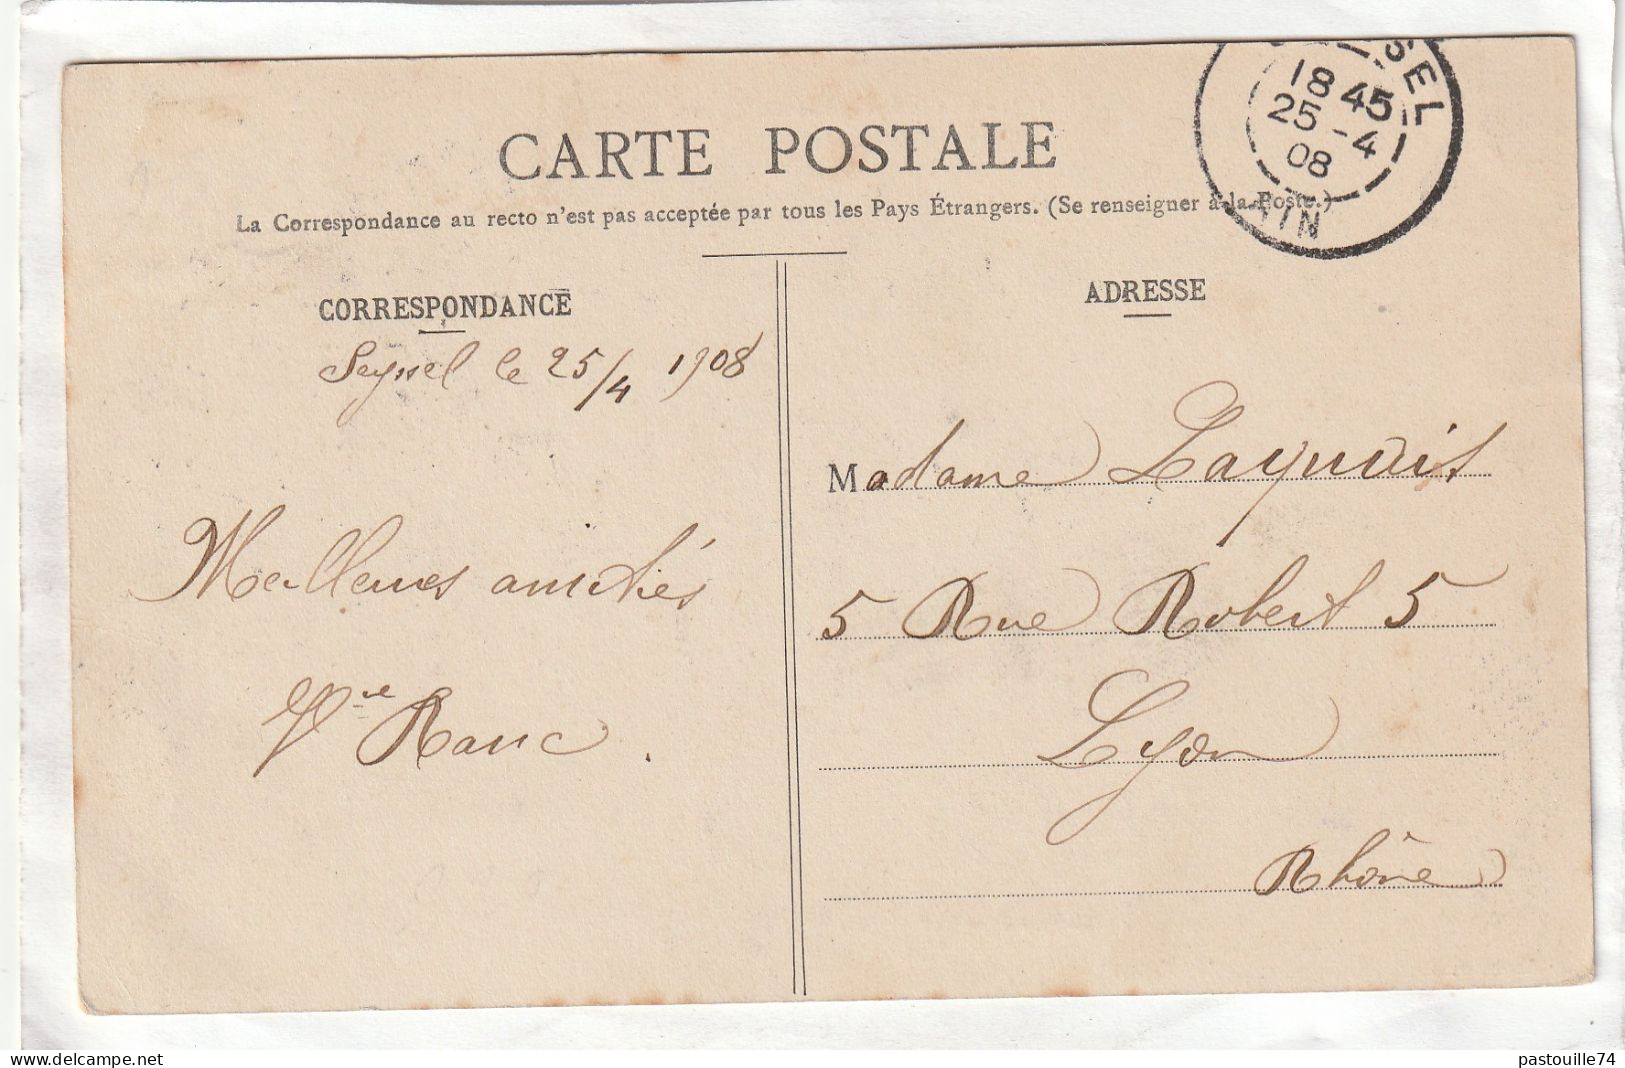 CARTE POSTALE
La Correspondance au recto n'est pas acceptée par tous les Pays Étrangers. (Se renseigner à la Poste.)
SEL
18 45
25 - 4
08
AIN
CORRESPONDANCE
Seyssel le 25/4 1908
Meilleures amitiés
Vve Ranc.
ADRESSE
Madame
5 Rue Robert 5
Lyon
Rhône
delcampe.net
pastouille74